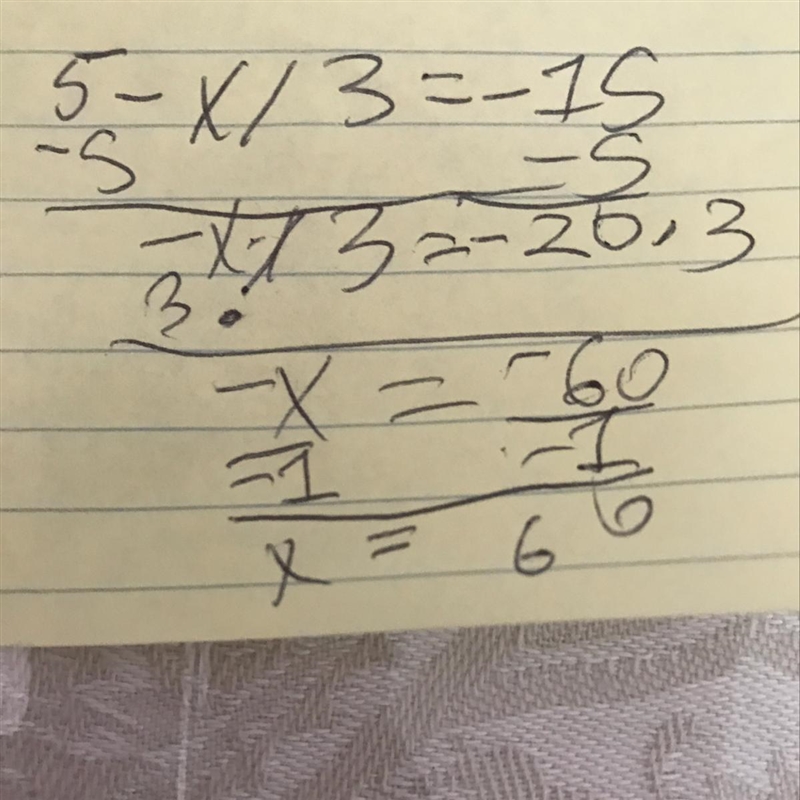 5 - x / 3 = -15
-5 -5
-x / 3 = -20 . 3
3 •
-x = -60
-1 -1
x = 60